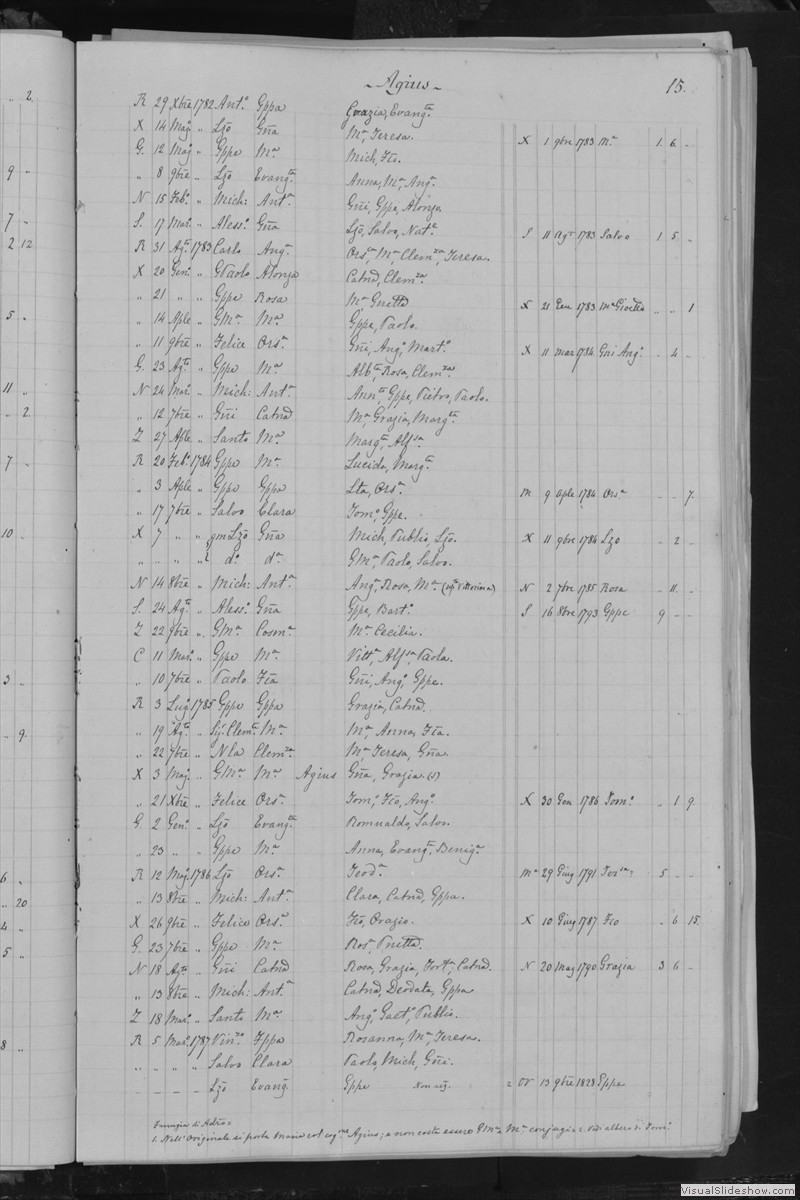 2
~ Agius ~ 15.
R 29 Xbre 1782 Ant.o Gppa Grazia, Evang.ta
X 14 Mag „ Lzo Gña M.a Teresa. X 1 9bre 1783 M.a 1 6 -
G. 12 Mag „ Gppe M.a Mich, Fco.
9 „ 8 9bre „ Lzo Evang.ta Anna, M.a Ang.a
N 15 Feb.o „ Mich: Ant.a Gñi, Gppe, Alonza
7 S. 17 Mar. „ Aless.o Gña Lzo, Salvo, Nat.e S 11 Ag.to 1783 Salvo 1 5 -
2 12 R 31 Ag.to 1783 Carlo Ang.a Ors.a M.a Clem.za Teresa.
X 20 Gen.o „ GPaolo Alonza Catnd, Clem.za
„ 21 „ „ Gppe Rosa M.a X 21 1783 M.a - „ 1
5 „ 14 Aple „ GM.a M.a Gppe, Paolo.
„ 11 9bre „ Felice Ors.a Gñi, Ang.o Mart.o X 11 mar 1784 Gñi Ang.o - 4 -
G. 23 Ag.to „ Gppe M.a Alb.a Rosa, Clem.za
11 N 24 Mar. „ Mich: Ant.a Ann.a Gppe, Pietro, Paolo.
2 „ 12 7bre „ Gñi Catnd M.a Grazia, Marg.ta
Z 27 Aple „ Santo M.a Marg.ta Alf.sa
7 R 20 Feb.o 1784 Gppe M.a Lucida, Marg.ta
„ 3 Aple „ Gppe Gppa Lta, Ors.a M 9 Aple 1784 Ors.a - - 7.
„ 17 7bre „ Salvo Clara Tom.o Gppe.
10 X 7 „ „ gm Lzo Gña Mich, Publio, Lzo. X 11 9bre 1784 Lzo - 2 -
„ „ „ „ d.o d.a GM.a Paolo, Salvo.
N 14 8bre „ Mich: Ant.a Ang.a Rosa, M.a Vittorina) N 2 7bre 1785 Rosa - 11. -
S. 24 Ag.to „ Aless.o Gña Gppe, Bart.o S 16 8bre 1793 Gppe 9 - -
Z 22 9bre „ GM.a Cosm.a M.a Cecilia.
C 11 Mar. „ Gppe M.a Vitt.a Alf.sa Paola.
3 „ 10 7bre „ Paolo Fca Gñi, Ang.o Gppe.
R 3 Lug. 1785 Gppe Gppa Grazia, Catnd.
9. „ 19 Ag.to „ Clem.te M.a M.a Anna, Fca.
„ 22 7bre „ Nla Clem.za M.a Teresa, Gña.
X 3 Mag. „ GM.a M.a Agius Gña, Grazia. (1)
„ 21 Xbre „ Felice Ors.a Tom.o Fco, Ang.o X 30 Gen 1786 Tom.o „ 1 9.
G. 2 Gen.o „ Lzo Evang.ta Romualdo, Salvo.
„ 23 „ „ Gppe M.a Anna, Evang.ta Benig.a
6 R 12 Mag. 1786 Lzo Ors.a Teod.a M.a 29 Giug 1791 5 - -
20 „ 13 8bre „ Mich: Ant.a Clara, Catnd, Gppa.
4 X 26 9bre „ Felice Ors.a Fco, Orazio. X 10 Giug 1787 Fco - 6 15.
5 G. 23 7bre „ Gppe M.a Ros.a
N 18 Ag.to „ Gñi Catnd Rosa, Grazia, Fort.a Catnd. N 20 Mag 1790 Grazia 3 6 -
„ 13 8bre „ Mich: Ant.a Catnd, Deodata, Gppa
Z 18 Mar. „ Santo M.a Ang.o Gaet.o Publio.
8 R 5 Mar. 1787 Vin.zo Gppa Rosanna, M.a Teresa.
„ „ „ „ Salvo Clara Paolo, Mich, Gñi.
- - - - Lzo Evang. Gppe Non 13 9bre 1828 Gppe
Famigia di
1. Nell' Originale si porta Maria col cog.me Agius; e non essere GM.a e M.a conjugi. Vedi albero di Tom.o
VisualSlideshow.com